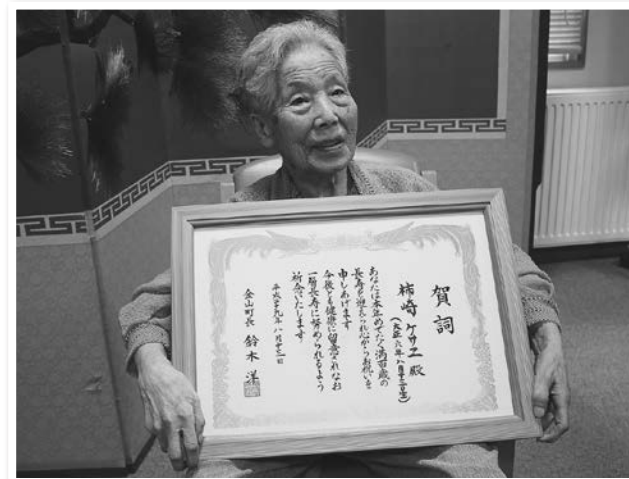 賀詞
柿崎 ケサエ 殿
(大正六年八月十三日生)
あなたは本年めでたく満百歳の
長寿を迎えられ心からお祝いを
申しあげます
今後とも健康に留意されなお
一層長寿に努められるよう
祈念いたします
平成二十九年八月十三日
金山町長 鈴木 洋